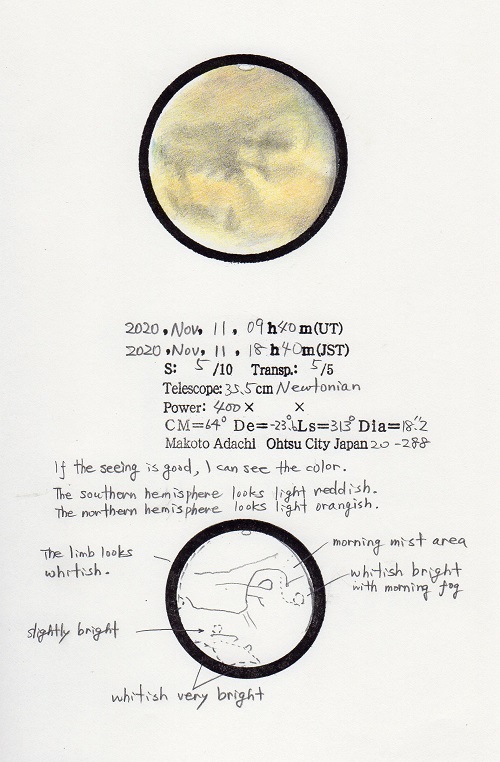 2020, Nov, 11, 09h40m(UT)
2020, Nov, 11, 18h40m(JST)
S: 5 /10 Transp.: 5/5
Telescope: 35.5cm Newtonian
Power: 400× ×
CM=64° De=-23.°6 Ls=313° Dia=18."2
Makoto Adachi Ohtsu City Japan 20-288
If the seeing is good, I can see the color.
The southern hemisphere looks light reddish.
The northern hemisphere looks light orangish.
The limb looks
whitish.
morning mist area
whitish bright
with morning fog
slightly bright
whitish very bright